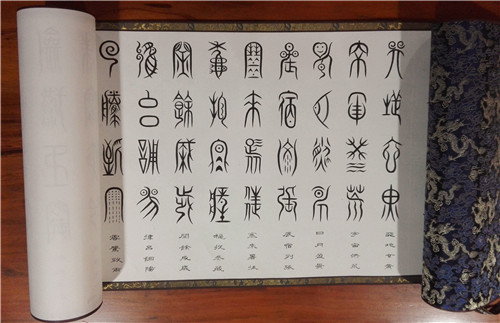 天地玄黃
天地玄黃
宇宙洪荒
宇宙洪荒
日月盈昃
日月盈昃
辰宿列張
辰宿列張
寒來暑往
寒來暑往
秋收冬藏
秋收冬藏
閏餘成歲
閏餘成歲
律呂調陽
律呂調陽
雲騰致雨
雲騰致雨